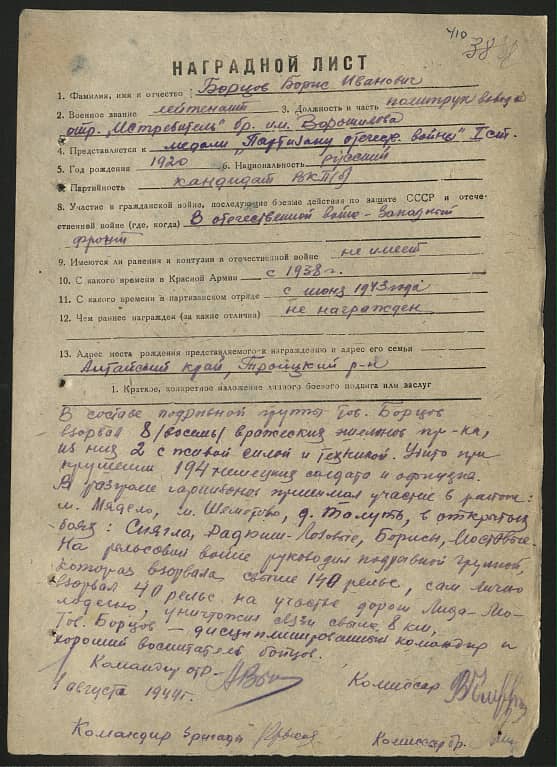 410
38
НАГРАДНОЙ ЛИСТ
1. Фамилия, имя и отчество Борцов Борис Иванович
2. Военное звание лейтенант 3. Должность и часть политрук взвода
отр. „Истребитель" бр. им. Ворошилова
4. Представляется к медали „Партизану отечеств. войны" I ст.
5. Год рождения 1920 6. Национальность русский
Партийность кандидат ВКП(б)
8. Участие в гражданской войне, последующие боевые действия по защите СССР и отече-
ственной войне (где, когда) В отечественной войне - Западный
фронт
9. Имеются ли ранения и контузии в отечественной войне не имеет
10. С какого времени в Красной Армии с 1938 г.
11. С какого времени в партизанском отряде с июня 1943 года
12. Чем раннее награжден (за какие отличия) не награжден
13. Адрес места рождения представляемого к награждению и адрес его семьи
Алтайский край, Троицкий р-н
1. Краткое, конкретное изложение личного боевого подвига или заслуг
В составе подрывной группы тов. Борцов
взорвал 8 /восемь/ вражеских эшелонов пр-ка,
из них 2 с живой силой и техникой. Убито при
крушении 194 немецких солдата и офицера.
В разгроме гарнизонов принимал участие в районе:
м. Мядело, м. Шеметово, д. Талуть, в открытых
боях: Сингла, Дадкиш- Лозовые, Борисы, Мостовые.
На рельсовой войне руководил подрывной группой,
которая взорвала свыше 140 рельс, сам лично
взорвал 40 рельс на участке дорог Лида-Мо-
лодечно, уничтожил связи свыше 8 км,
Тов. Борцов - дисциплинированный командир и
хороший воспитатель бойцов.
Командир отр.- Комиссар
1 августа 1944 г.
Командир бригады Комиссар бр.